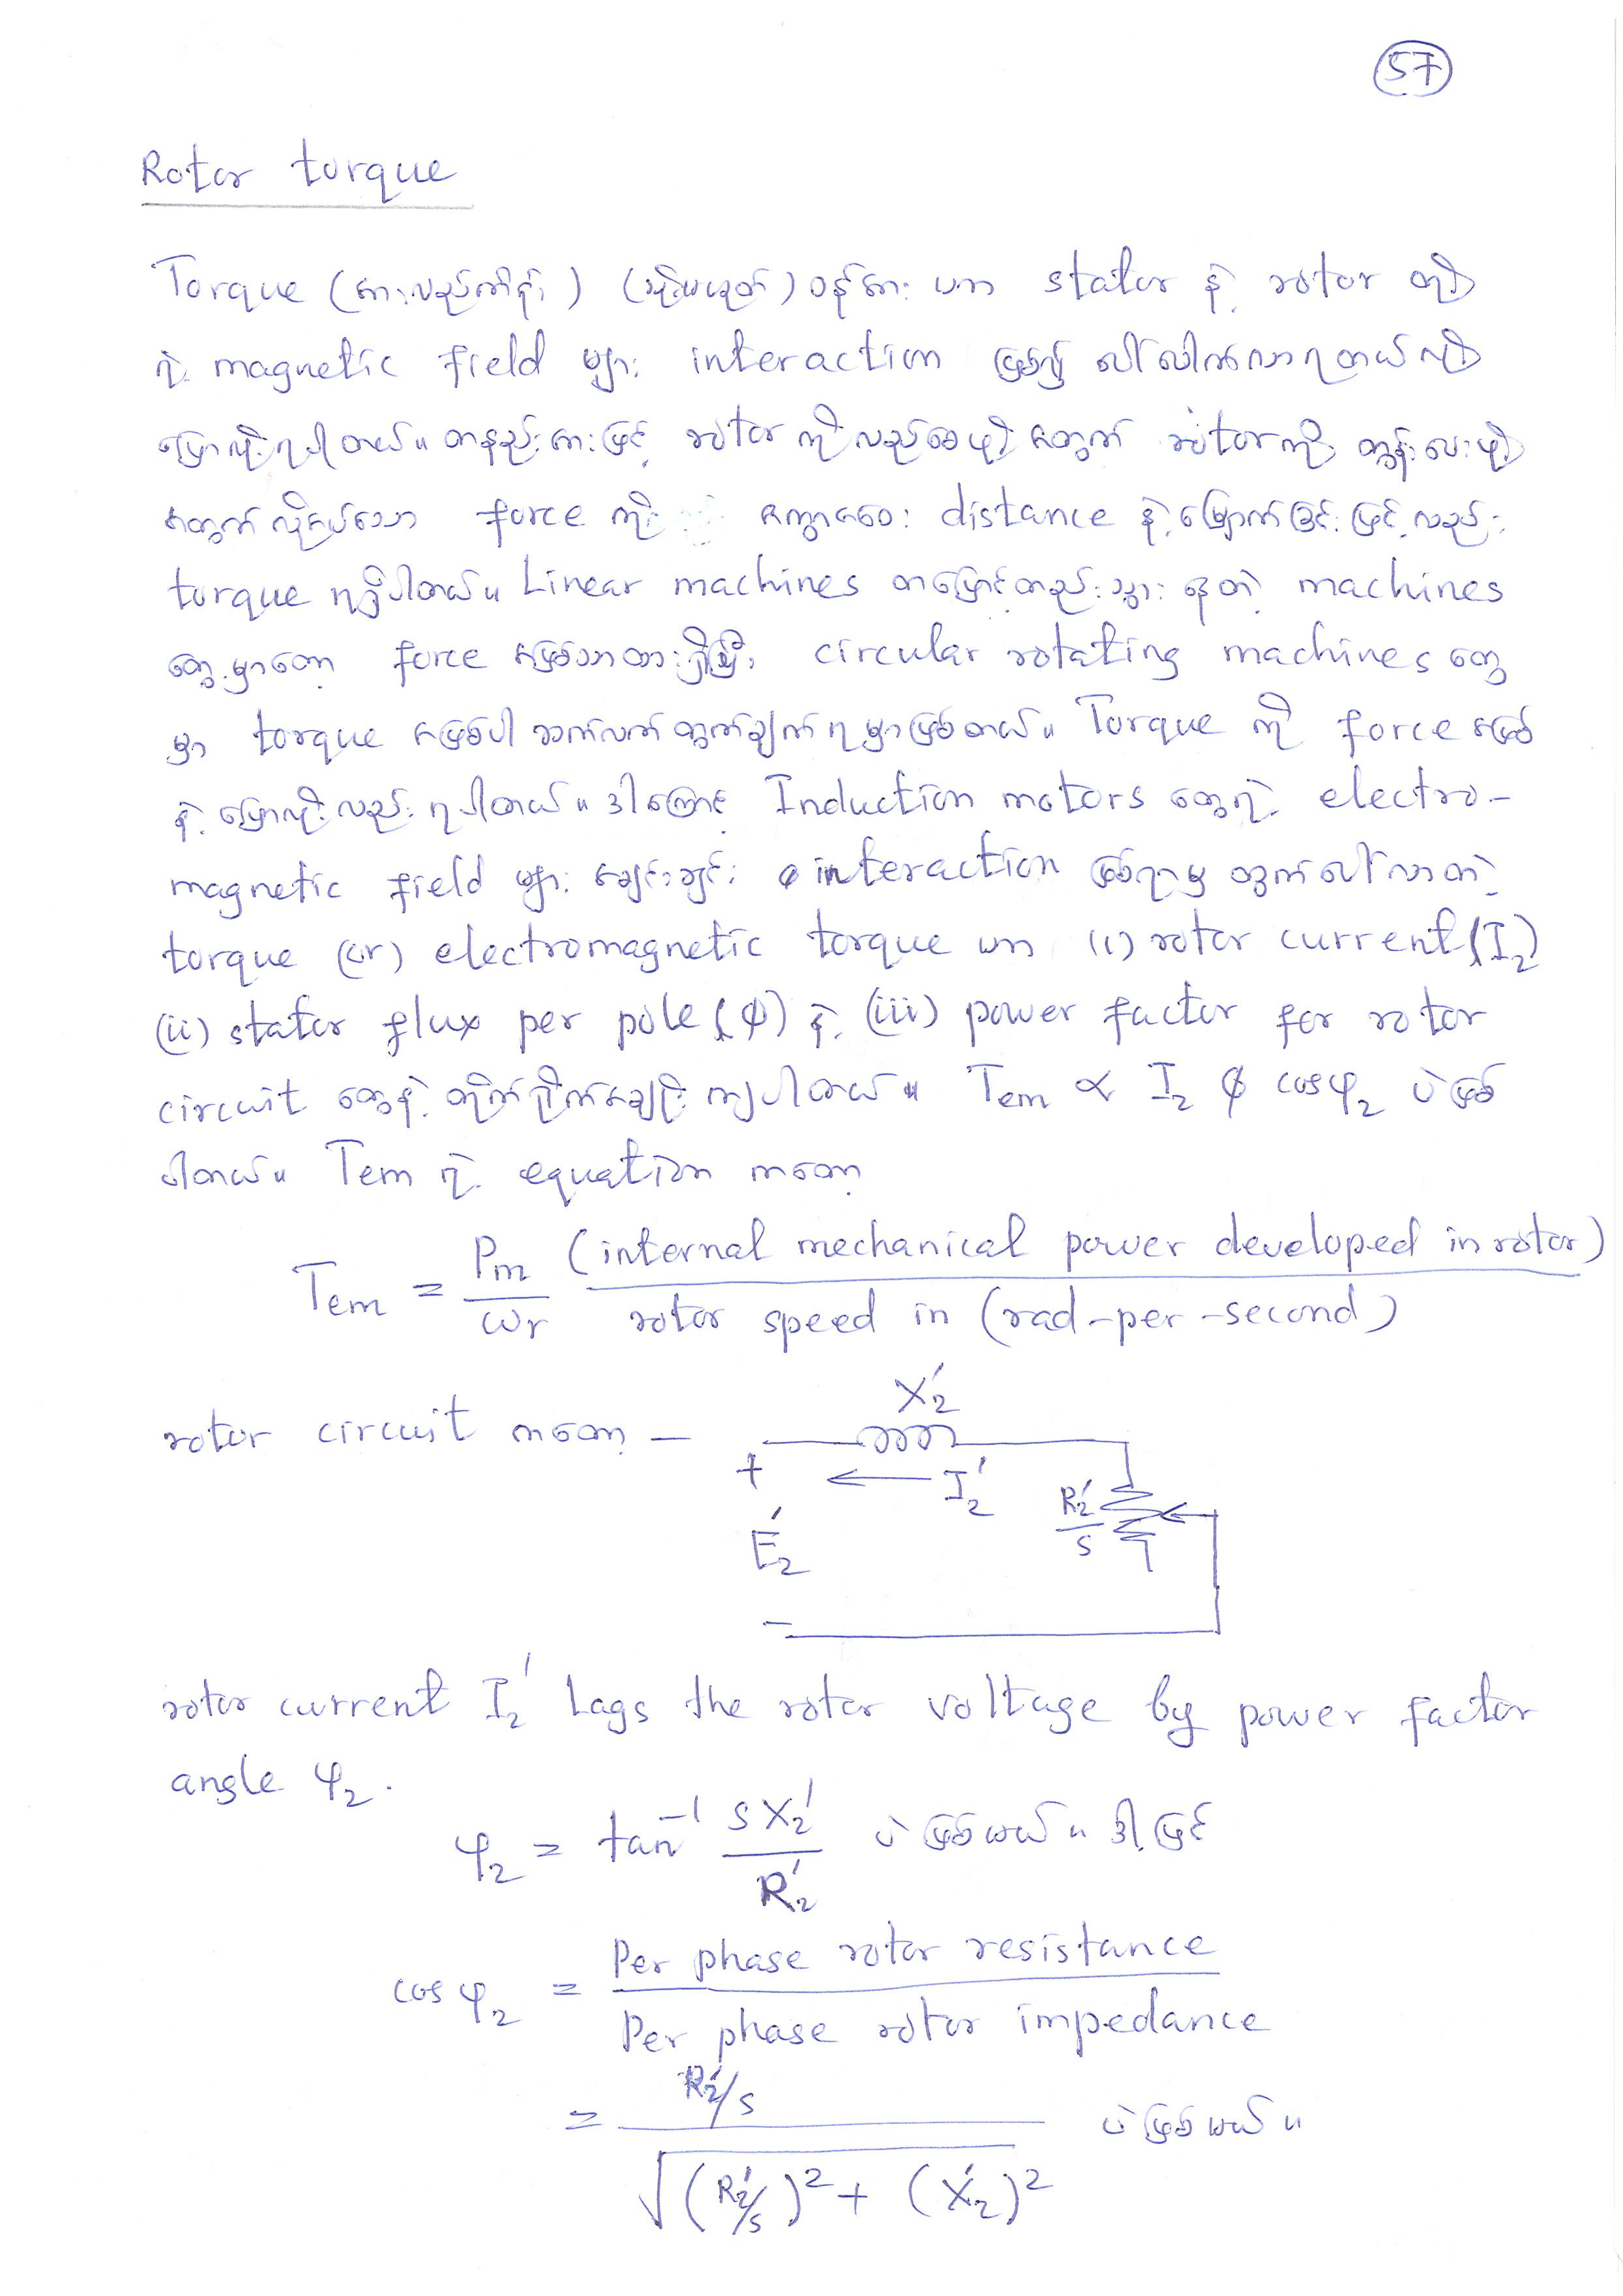 57
Rotor torque
Torque (အားလှည့်ကိန်း) (သို့မဟုတ်) ဝန်အား ဟာ stator နဲ့ rotor တို့
ရဲ့ magnetic field များ interaction ဖြစ်၍ ပေါ်ပေါက်လာရတယ်လို့
ပြောလို့ရပါတယ်။ တနည်းအားဖြင့် rotor ကို လည်စေဖို့ အတွက် rotor ကို တွန်းပေးဖို့
အတွက် လိုအပ်သော force ကို အကွာအဝေး distance နဲ့ မြှောက်ခြင်းဖြင့် လည်း
torque ရရှိပါတယ်။ Linear machines တဖြောင့်တည်းသွားနေတဲ့ machines
တွေမှာတော့ force အဖြစ်သာထားရှိပြီး circular rotating machines တွေ
မှာ torque အဖြစ်ပါ ဆက်လက်တွက်ချက်ရမှာဖြစ်တယ်။ Torque ကို force အဖြစ်
နဲ့ ပြောလို့လည်း ရပါတယ်။ ဒါကြောင့် Induction motors တွေရဲ့ electro-
magnetic field များ အချင်းချင်း interaction ဖြစ်ရာမှ ထွက်ပေါ်လာတဲ့
torque (or) electromagnetic torque ဟာ (i) rotor current (I₂)
(ii) stator flux per pole (ϕ) နဲ့ (iii) power factor for rotor
circuit တွေနဲ့ တိုက်ရိုက်အချိုးကျပါတယ်။ Tem ∝ I₂ ϕ cosφ₂ ပဲဖြစ်
ပါတယ်။ Tem ရဲ့ equation ကတော့
Tem = Pm/ωr (internal mechanical power developed in rotor) / rotor speed in (rad-per-second)
X₂′
rotor circuit ကတော့ —
+ I₂′
R₂′/s
E₂′
−
rotor current I₂′ lags the rotor voltage by power factor
angle φ₂.
φ₂ = tan⁻¹ sX₂′/R₂′ ပဲဖြစ်မယ်။ ဒါ့ဖြင့်
cosφ₂ = Per phase rotor resistance / Per phase rotor impedance
= R₂′/s / √(R₂′/s)² + (X₂′)² ပဲဖြစ်မယ်။